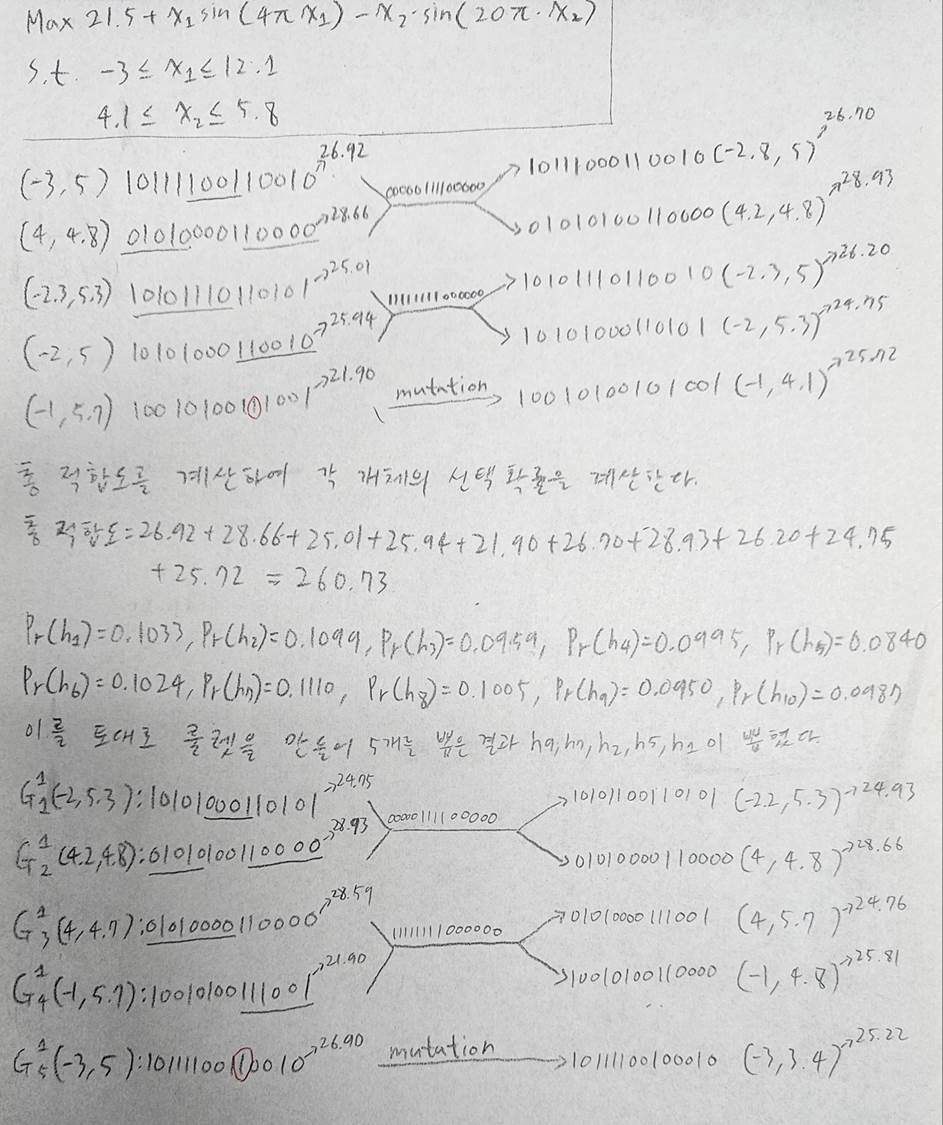 Max 21.5 + x₁ sin(4πx₁) - x₂·sin(20π·x₂)
s.t. -3 ≤ x₁ ≤ 12.1
4.1 ≤ x₂ ≤ 5.8
(-3, 5) 10111100110010 → 26.92 00000111100000 → 10111000110010 (-2.8, 5) → 26.70
(4, 4.8) 01010000110000 → 28.66 → 01010100110000 (4.2, 4.8) → 28.93
(-2.3, 5.3) 10101110110101 → 25.01 11111111000000 → 10101110110010 (-2.3, 5) → 26.20
(-2, 5) 10101000110010 → 25.94 → 10101000110101 (-2, 5.3) → 24.75
(-1, 5.7) 10010100101001 → 21.90 mutation → 10010100101001 (-1, 4.1) → 25.72
총 적합도를 계산하여 각 개체의 선택 확률을 계산한다.
총 적합도 = 26.92 + 28.66 + 25.01 + 25.94 + 21.90 + 26.70 + 28.93 + 26.20 + 24.75
+ 25.72 = 260.73
Pr(h₁)=0.1033, Pr(h₂)=0.1099, Pr(h₃)=0.0959, Pr(h₄)=0.0995, Pr(h₅)=0.0840
Pr(h₆)=0.1024, Pr(h₇)=0.1110, Pr(h₈)=0.1005, Pr(h₉)=0.0950, Pr(h₁₀)=0.0987
이를 토대로 룰렛을 만들어 5개를 뽑은 결과 h9, h7, h2, h5, h1 이 뽑혔다.
G¹₁(-2, 5.3): 10101000110101 → 24.75 00000111100000 → 10101100110101 (-2.2, 5.3) → 24.93
G¹₂(4.2, 4.8): 01010100110000 → 28.93 → 01010000110000 (4, 4.8) → 28.66
G¹₃(4, 4.7): 01010000110000 → 28.59 11111111000000 → 01010000111001 (4, 5.7) → 24.76
G¹₄(-1, 5.7): 10010100111001 → 21.90 → 10010100110000 (-1, 4.8) → 25.81
G¹₅(-3, 5): 10111100110010 → 26.90 mutation → 10111100100010 (-3, 3.4) → 25.22